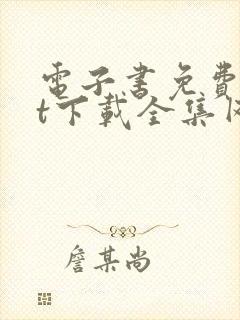 電子書免費
t下載全集
詹某尚